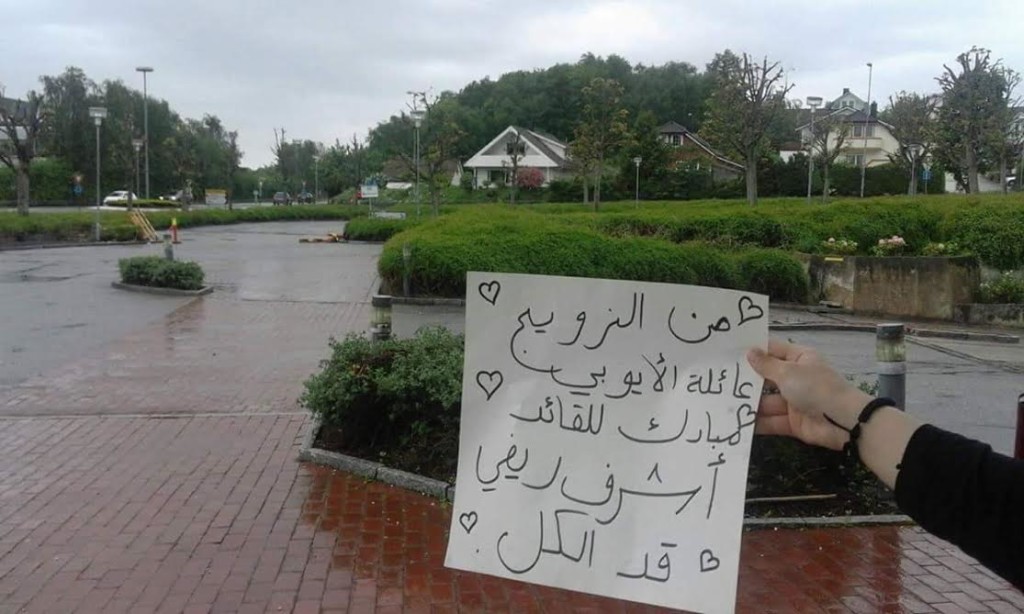 من النرويج
عائلة الأيوبي
مبارك للقائد
أشرف ريفي
قد الكل